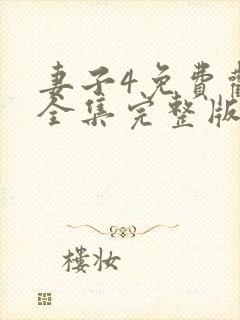 妻子4免费
全集完整版
楼妆